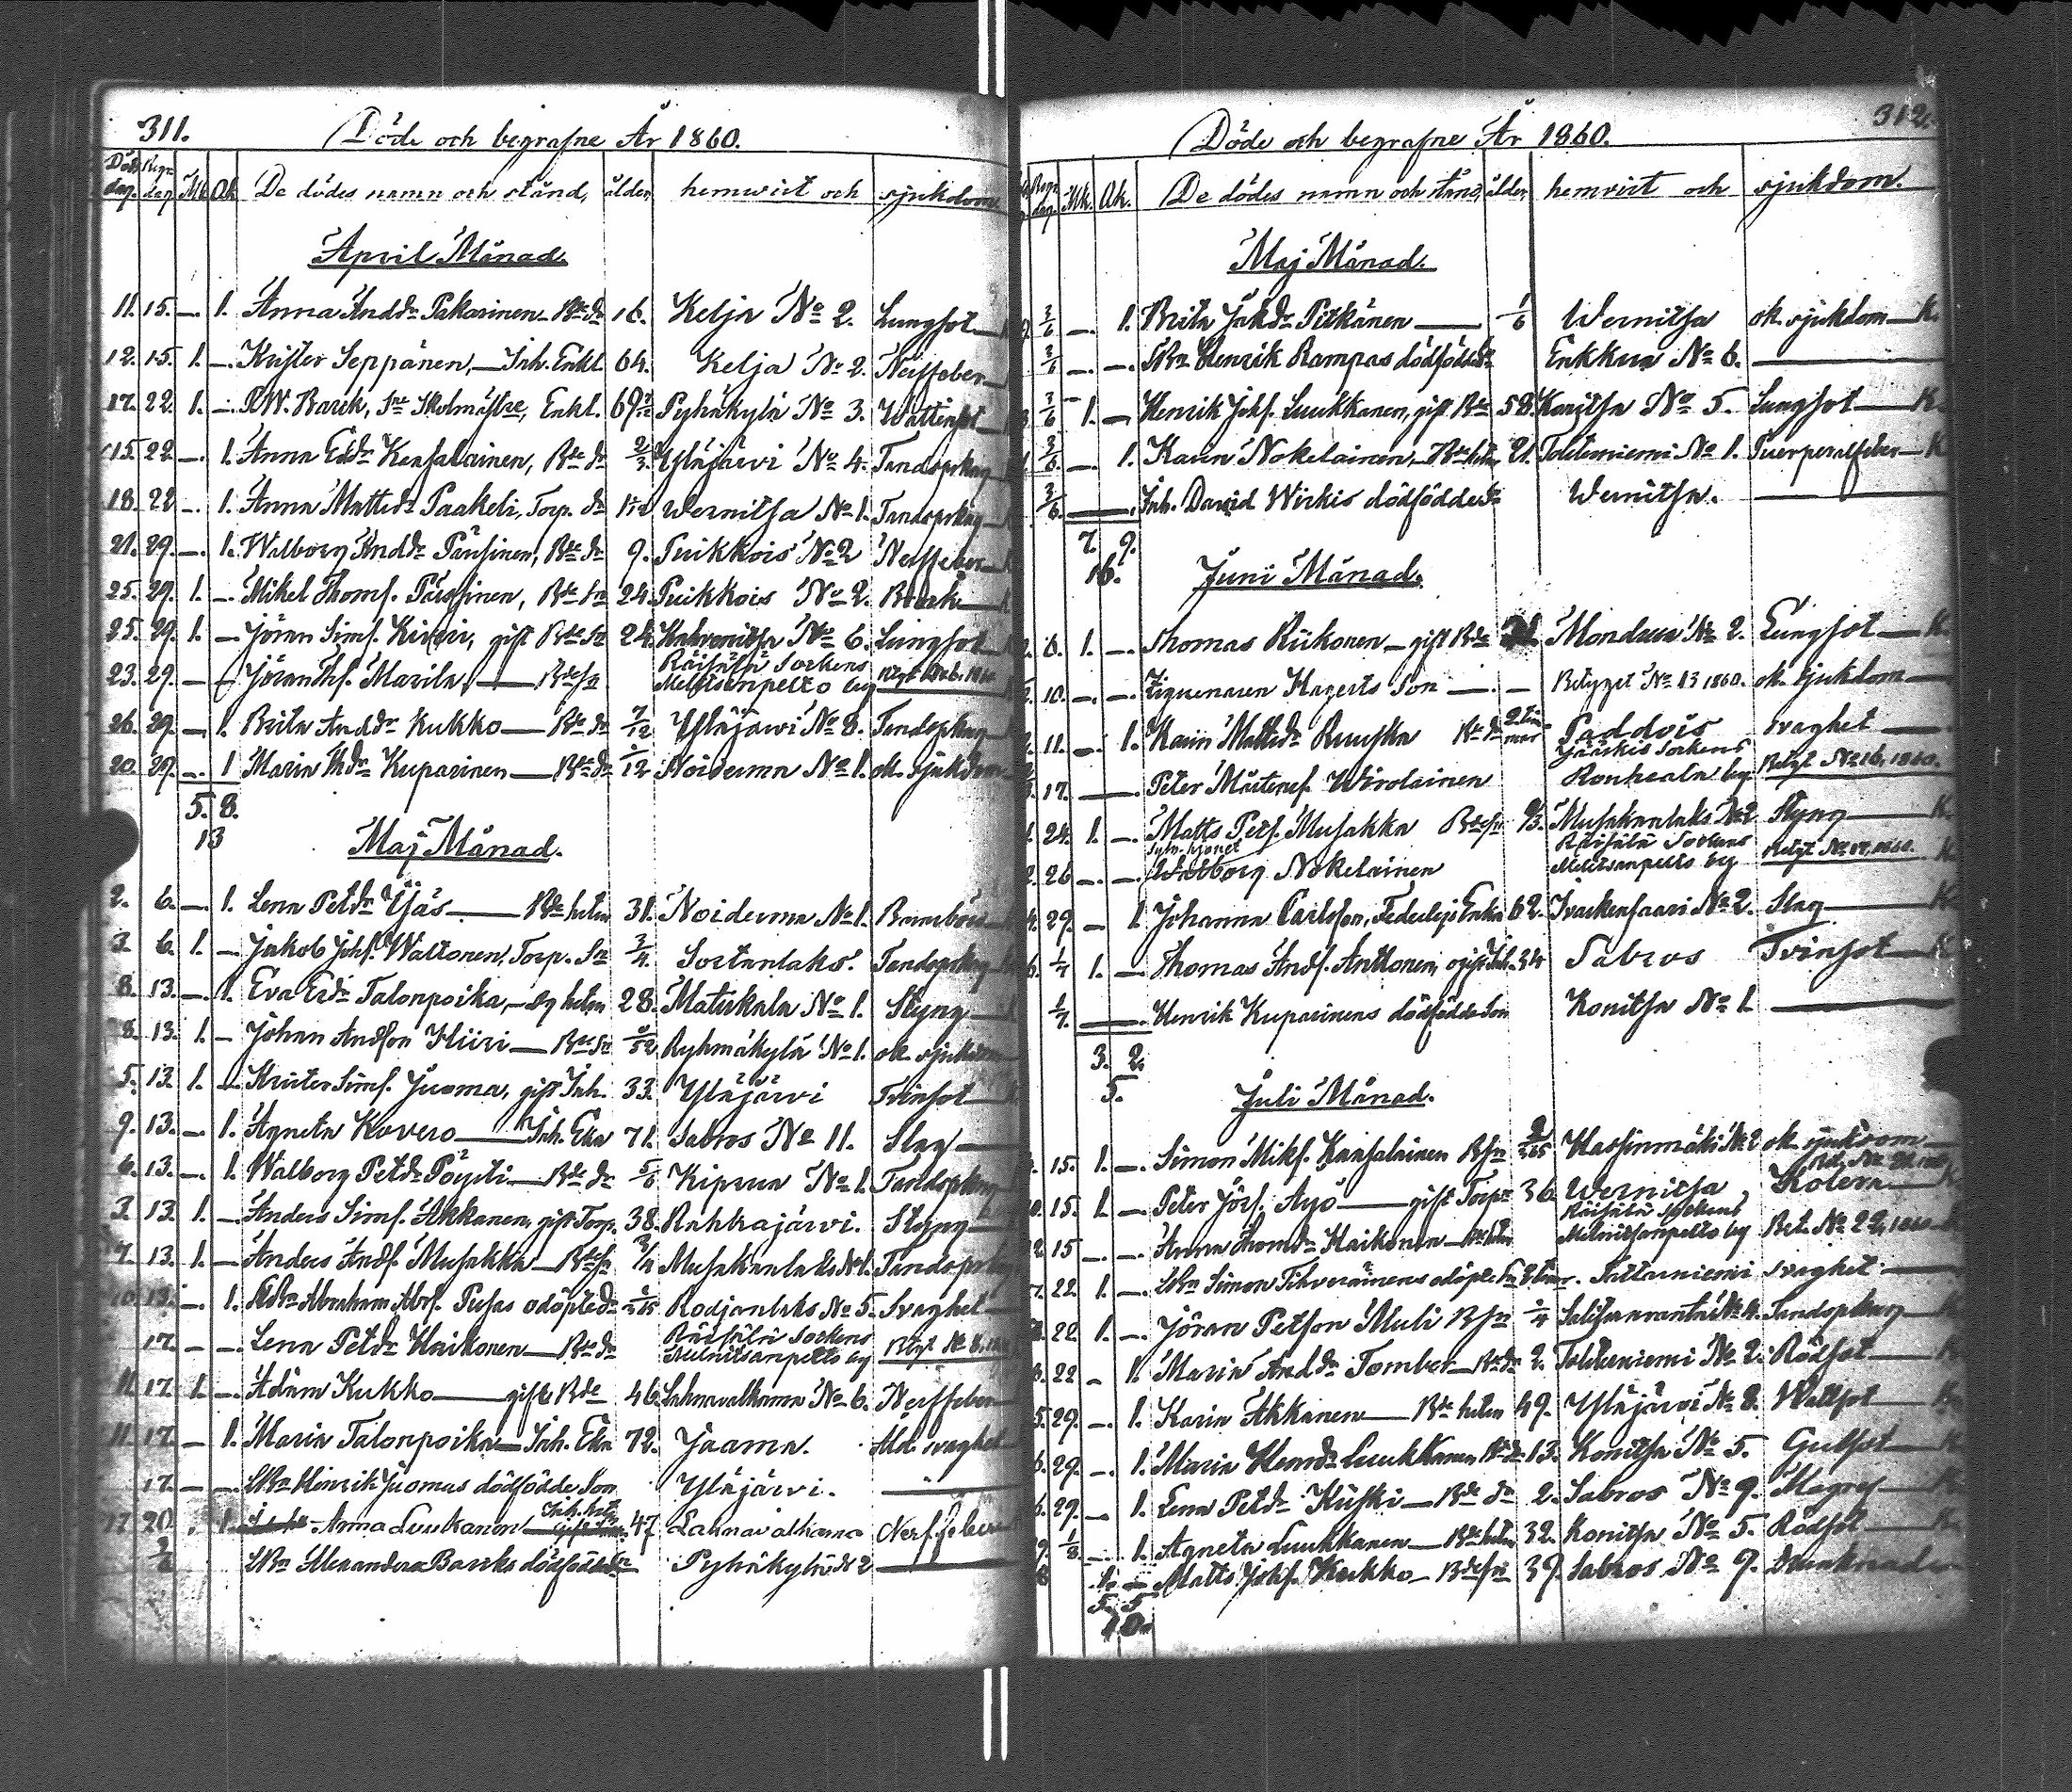 311.
Döde och begrafne År 1860.
Döds dag. Begr. dag Mk. Qk. De dödes namn och stånd, ålder, hemvist och sjukdom.
April Månad.
11. 15. — 1. Anna Andd:r Pakarinen — Bde dr 16. Kelja No 2. Lungsot
12. 15. 1. — Krister Seppänen, — Inh. Enkl. 64. Kelja No 2. Nerffeber
17. 22. 1. — Skolmästre, Enkl. 69 Pyhäkylä No 3. Wattensot
15. 22. — 1. Anna Kansalainen, Bde dr 2/3. Yläjärvi No 4. Tandsprkng
18. 22 — 1. Anna Mattsdr Paakeli, Torp. dr Wernitsa No 1. Tandsprkng
21. 29. — 1. Walborg Andd:r Pärssinen, Bde dr 9. Puikkois No 2 Nerffeber
25. 29. 1. — Mikel Thoms. Pärssinen, Bde Sn 24. Puikkois No 2. Bråck
25. 29. 1. — Jöran Sims. Kiveri, gift Bde Sn 24. No 6. Lungsot
23. 29. — — Jöran Ths. Marila, — Bde Sn Räisälä Sockens Melnitsanpelto by
26. 29. — 1. Brita Andd:r Kukko — Bde dr 7/12 Yläjärvi No 8. Tandsprkng
20. 29. — 1 Maria Thdr Kuparinen — Bde dr 1/12 Noiderma No 1. ok. sjukdom
5. 8.
13
Maj Månad.
2. 6. — 1. Lena Petdr Äijäs — Bde hstru 31. Noiderma No 1. Barnsbörd
3 6. 1. — Jakob Johs. Waltonen, Torp. Sn 3/4. Sortanlaks. Tandsprkng
8. 13. — 1. Eva Erdr Talonpoika, — hstru 28. Matiskala No 1. Styng
8. 13. 1. — Johan Andson Hiiri — Bde Sn Ryhmäkylä No 1. ok. sjukdom
5. 13. 1. — Krister Sims. Juoma, gift Inh. 33. Yläjärvi Tvinsot
9. 13. — 1. Agneta Kovero — Inh. Eka 71. Sabros No 11. Slag
6. 13. — 1. Walborg Petdr Pöysti — Bde dr 5/6 Kiprua No 1. Tandsprkng
3. 13. 1. — Anders Sims. Akkanen, gift Torp. 38. Rahkajärvi. Styng
7. 13. 1. — Anders Ands. Musakka — Bde Sn 3/4 Musakanlaks No 1. Tandsprkng
10. 13. — 1. Abraham Abrs. Pusas odöpte dr Rodjanlaks No 5. Svaghet
17. — — Lena Petdr Haikonen — Bde dr Räisälä Sockens Melnitsanpelto by
11. 17. 1. — Adam Kukko — gift Bde 46. Lahnavalkama No 6. Nerffeber
11. 17. — 1. Maria Talonpoika — Inh. Eka 72. Jaama. Åld. svaghet
17. — — Henrik Juomas dödfödde Son Yläjärvi. —
17 20. 1. Anna Luukanen 47 Lahnavalkama Nerffeber
3/6 Alexandera Barcks dödfödde Pyhäkylä No 2 —
312.
Döde och begrafne År 1860.
Begr. dag. Mk. Qk. De dödes namn och stånd, ålder, hemvist och sjukdom.
Maj Månad.
3/6 — 1. Brita Jakdr Pitkänen — 1/6 Wernitsa ok. sjukdom — K.
3/6 — — Henrik Rampas dödfödde Enkkua No 6. —
3/6 1. — Henrik Johs. Luukkanen, gift Bde 58. Konitsa No 5. Lungsot — K.
3/6. — 1. Karin Nokelainen, — Bde hstru 21. Tolttiniemi No 1. Puerperalfeber — K
3/6. — Inh. David Wirkis dödfödde Wernitsa. —
7. 9.
16.
Juni Månad.
6. 1. — Thomas Riikonen — gift Bde Mondrus No 2. Lungsot — K.
10. — — Ziguenaren Hagerts Son — — Betyget No 13 1860. ok. sjukdom —
11. — 1. Karin Mattsdr Ruuska Bde dr 2 tim mar Saddois svaghet —
17. — Peter Mårtens. Wirolainen Jääskis Sockens Ronkeala by Betyg No 16, 1860.
24. 1. — Matts Pets. Musakka Bde Sn Musakanlaks No 2 Styng — K.
26 — — Walborg Nokelainen Räisälä Sockens Melnitsanpelto by
29. — 1 Johanna Carlsson, Enka 62. Ivaskensaari No 2. Slag — K
1/7 1. — Thomas Ands. Anttonen, ogift Inh. 34 Sabros Tvinsot — K
1/7. — Henrik Kuparinens dödfödde Son Konitsa No 1 —
3. 2.
5.
Juli Månad.
15. 1. — Simon Miks. Kansalainen B Sn Hassinmäki No 2 ok. sjukdom —
15. 1. — Peter Jörs. Äyö — gift Torpr 36. Wernitsa Kolera — K
15 — — Anna Thomdr Haikonen — Räisälä Sockens Melnitsanpelto by Bet. No 22, 1860
22. 1. — Simon Tihveräinens odöpte Sn Sattaniemi svaghet —
22. 1. — Jöran Petson Muli B Sn 1/4 No 4. Tandsprkng — K
22 — 1. Maria Andd:r Tomber — Bde dr 2. Tolttiniemi No 2. Rödsot — K
29. — 1. Karin Akkanen — Bde hstru 49. Yläjärvi No 8. Wattsot — K.
29. — 1. Maria Henrdr Luukkanen Bde dr 13. Konitsa No 5. Gulsot — K
29. — 1. Lena Petdr Kiiski — Bde dr 2. Sabros No 9. Magref — K.
1/8 — 1. Agneta Luukkanen — Bde hstru 32. Konitsa No 5. Rödsot — K.
1. — Matts Johs. Kukko — Bde Sn 39. Sabros No 9. Drunknade
5. 5
10.